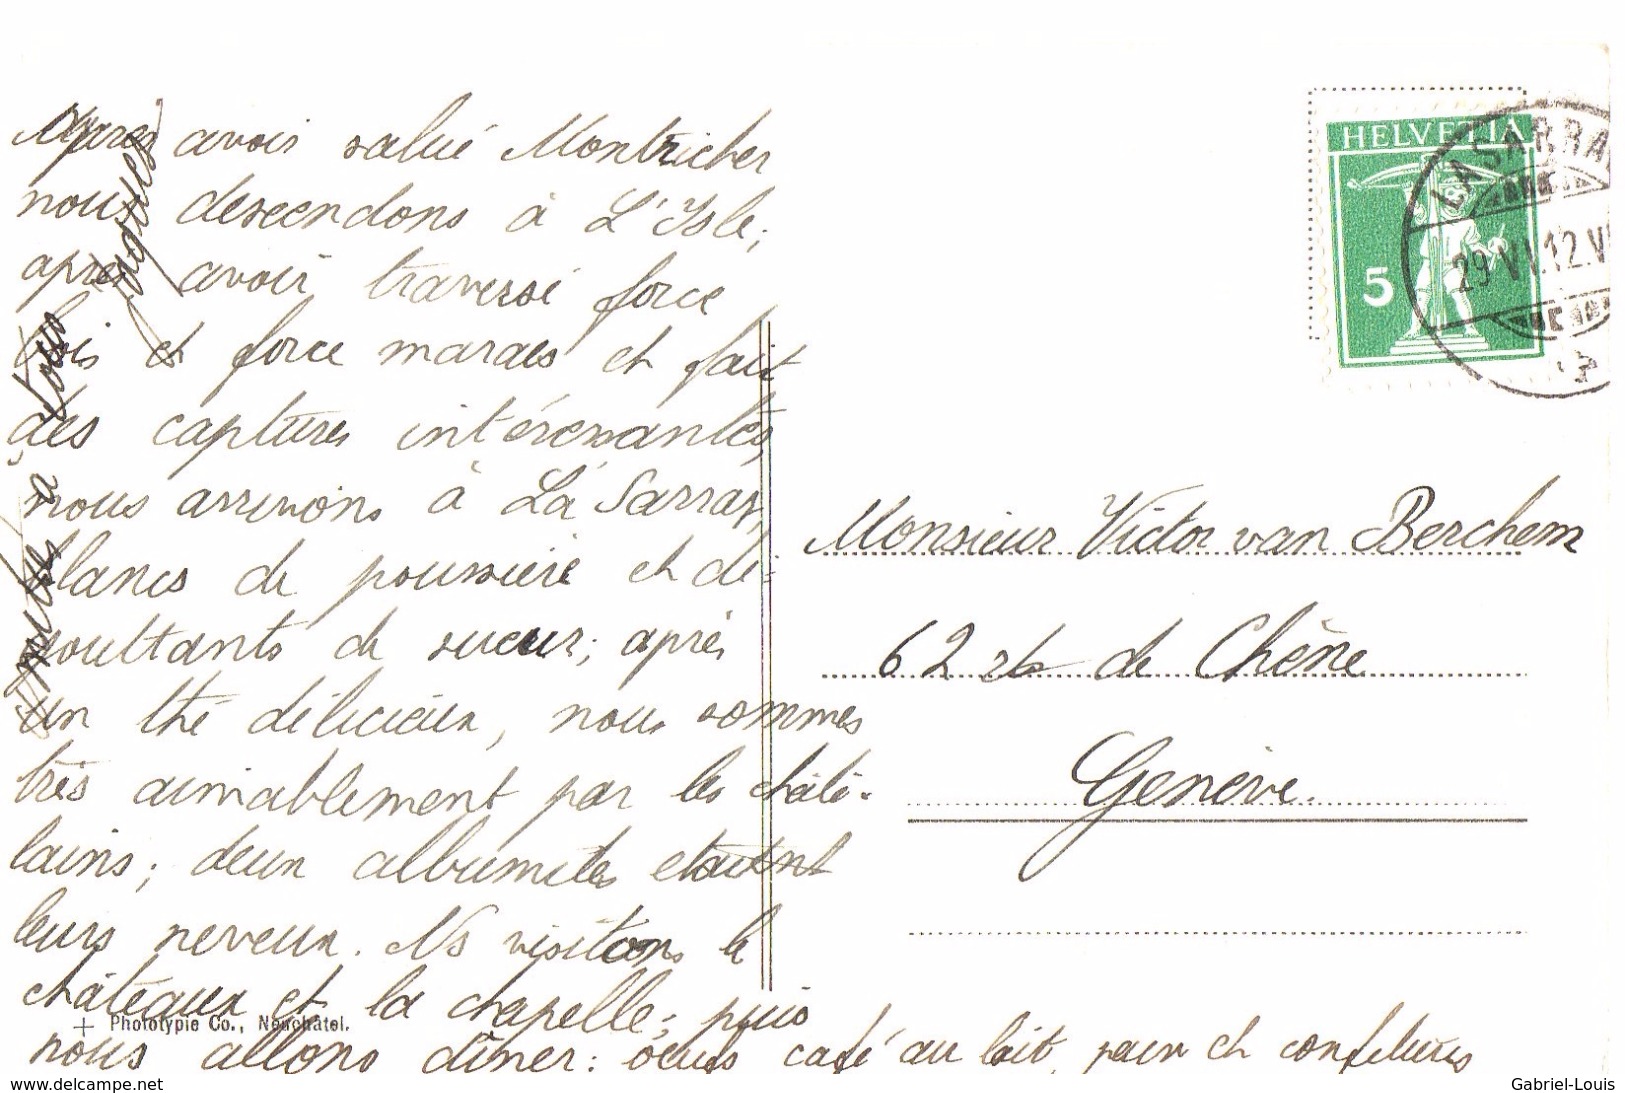 Après avoir salué Montricher
nous descendons à L'Isle;
après avoir traversé force
bois et force marais et fait
des captures intéressantes
nous arrivons à La Sarraz,
blancs de poussière et dé-
gouttants de sueur; après
un thé délicieux, nous sommes
très aimablement par les châte-
lains; deux albumites etaient
leurs neveux. Ns visitons le
châteaux et la chapelle; puis
nous allons dîner: oeufs café au lait, pain et confitures
à tous
HELVETIA
5
LA SARRAZ
29.VI.12.V
Monsieur Victor van Berchem
62 rte de Chêne
Genève.
Phototypie Co., Neuchâtel.
www.delcampe.net
Gabriel-Louis